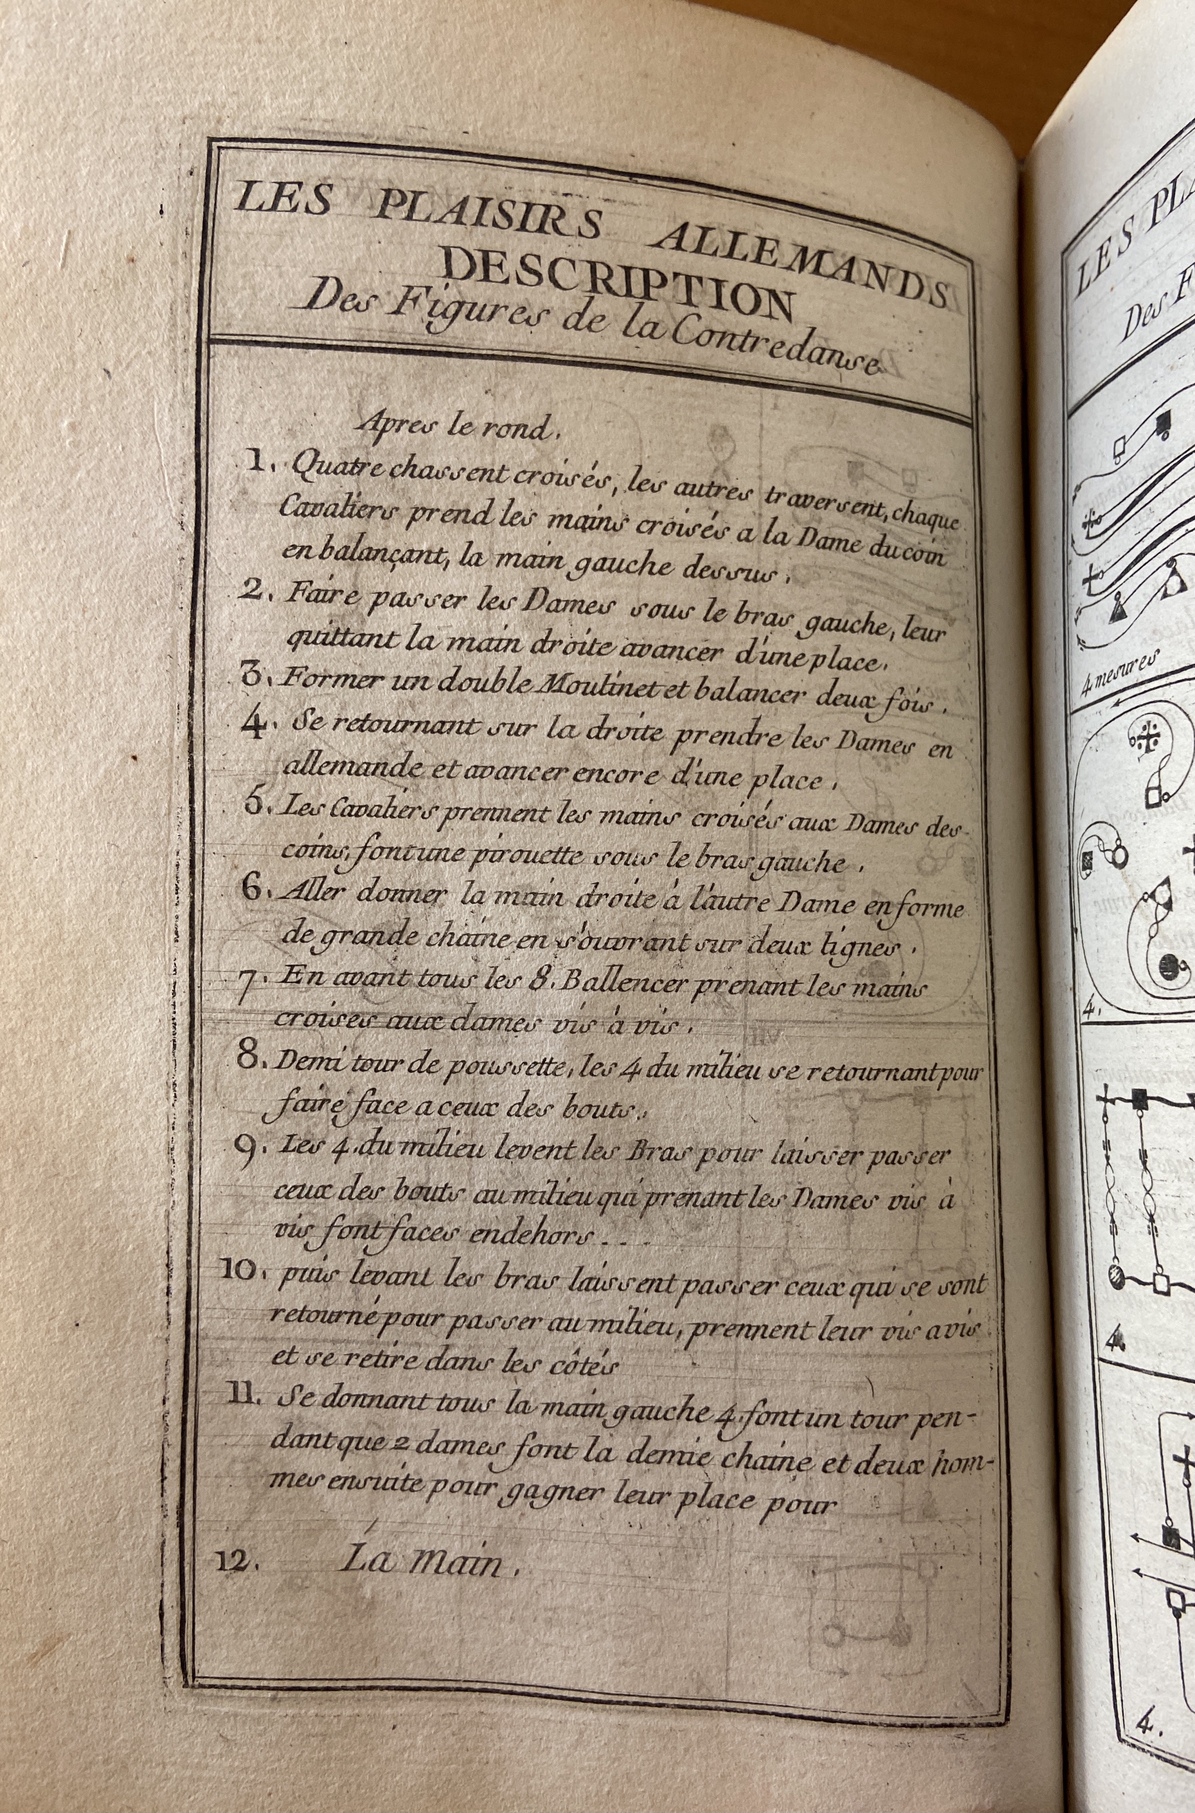 LES PLAISIRS ALLEMANDS
DESCRIPTION
Des Figures de la Contredanse
Apres le rond.
1. Quatre chassent croisés, les autres traversent, chaque
Cavaliers prend les mains croisés a la Dame du coin
en balançant, la main gauche dessus.
2. Faire passer les Dames sous le bras gauche, leur
quittant la main droite avancer d'une place.
3. Former un double Moulinet et balancer deux fois.
4. Se retournant sur la droite prendre les Dames en
allemande et avancer encore d'une place.
5. Les Cavaliers prennent les mains croisés aux Dames des
coins, font une pirouette sous le bras gauche.
6. Aller donner la main droite à l'autre Dame en forme
de grande chaine en s'ouvrant sur deux lignes.
7. En avant tous les 8. Ballencer prenant les mains
croises aux dames vis à vis.
8. Demi tour de poussette, les 4 du milieu se retournant pour
faire face a ceux des bouts.
9. Les 4. du milieu levent les Bras pour laisser passer
ceux des bouts au milieu qui prenant les Dames vis à
vis font faces en dehors . . .
10. puis levant les bras laissent passer ceux qui se sont
retourné pour passer au milieu, prennent leur vis a vis
et se retire dans les côtés
11. Se donnant tous la main gauche 4. font un tour pen-
dant que 2 dames font la demie chaine et deux hom-
mes ensuite pour gagner leur place pour
12. La Main.
LES PLA
Des F
4 mesures
4.
4.
4.